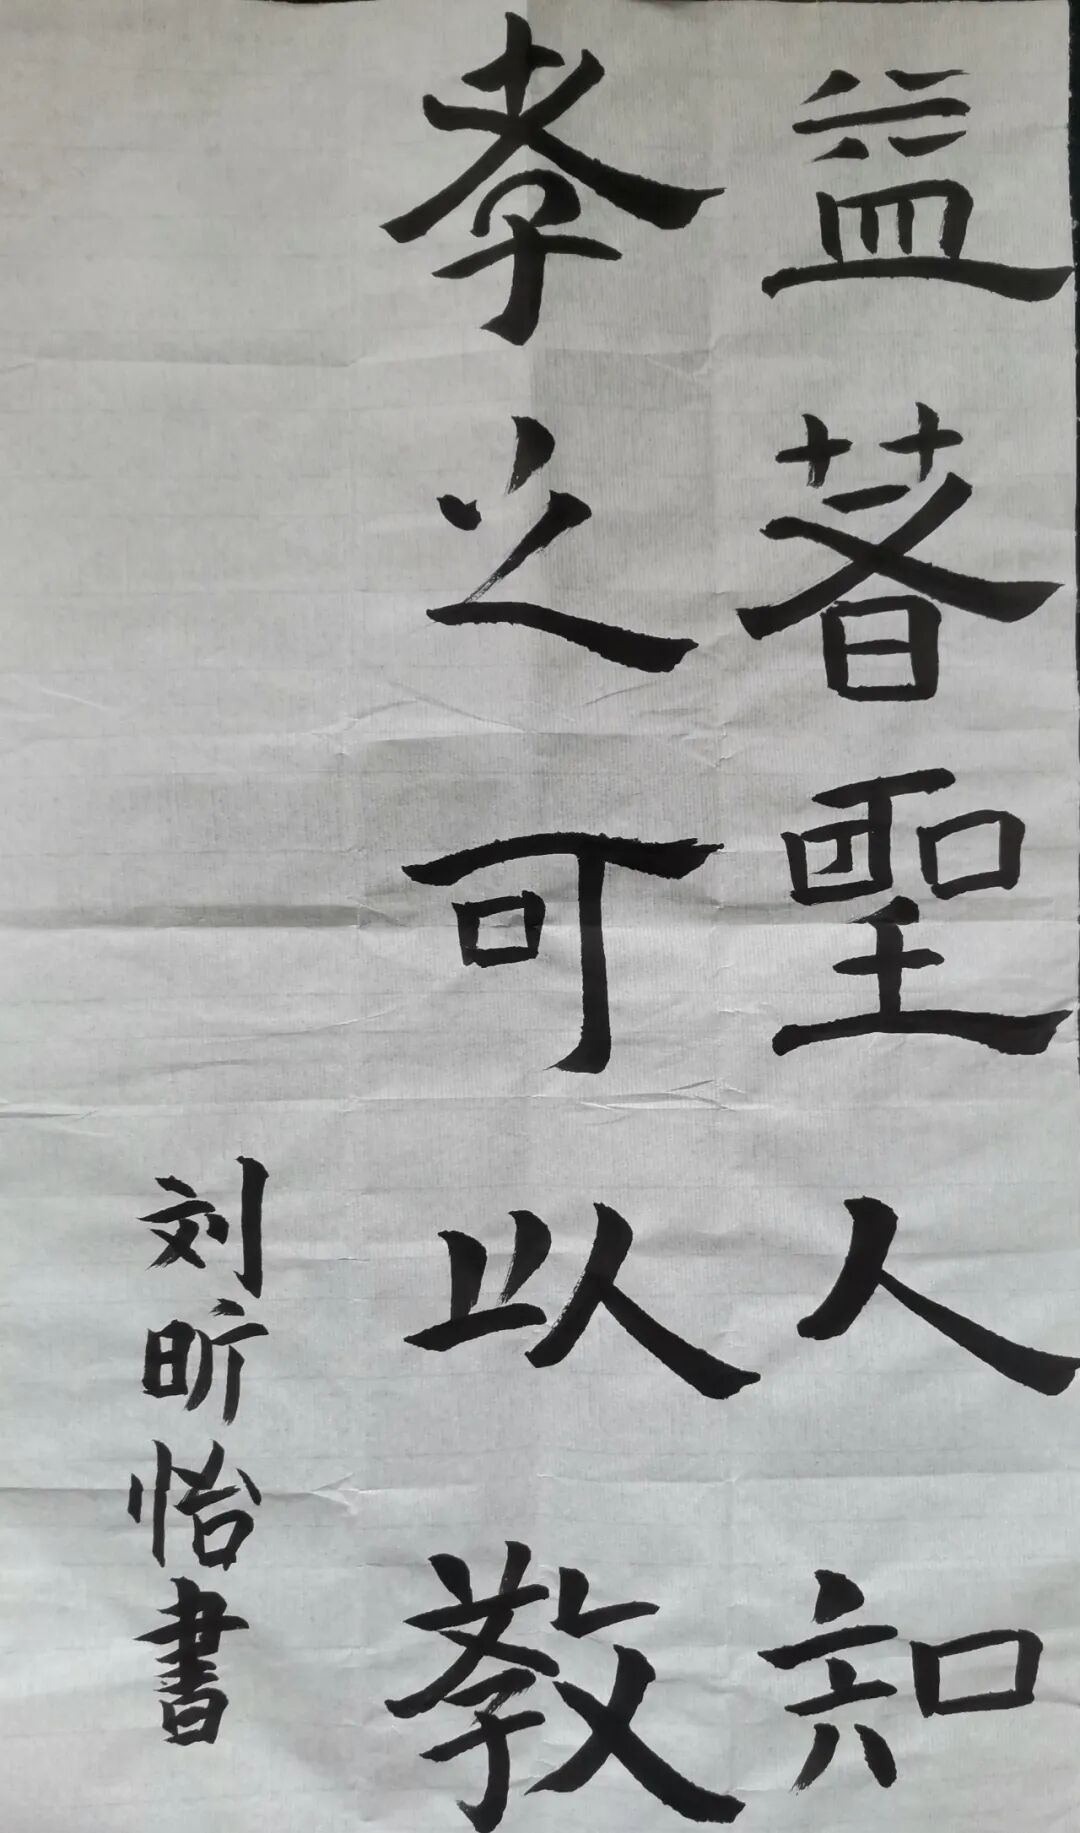 益著聖人知
孝之可以教
刘昕怡書